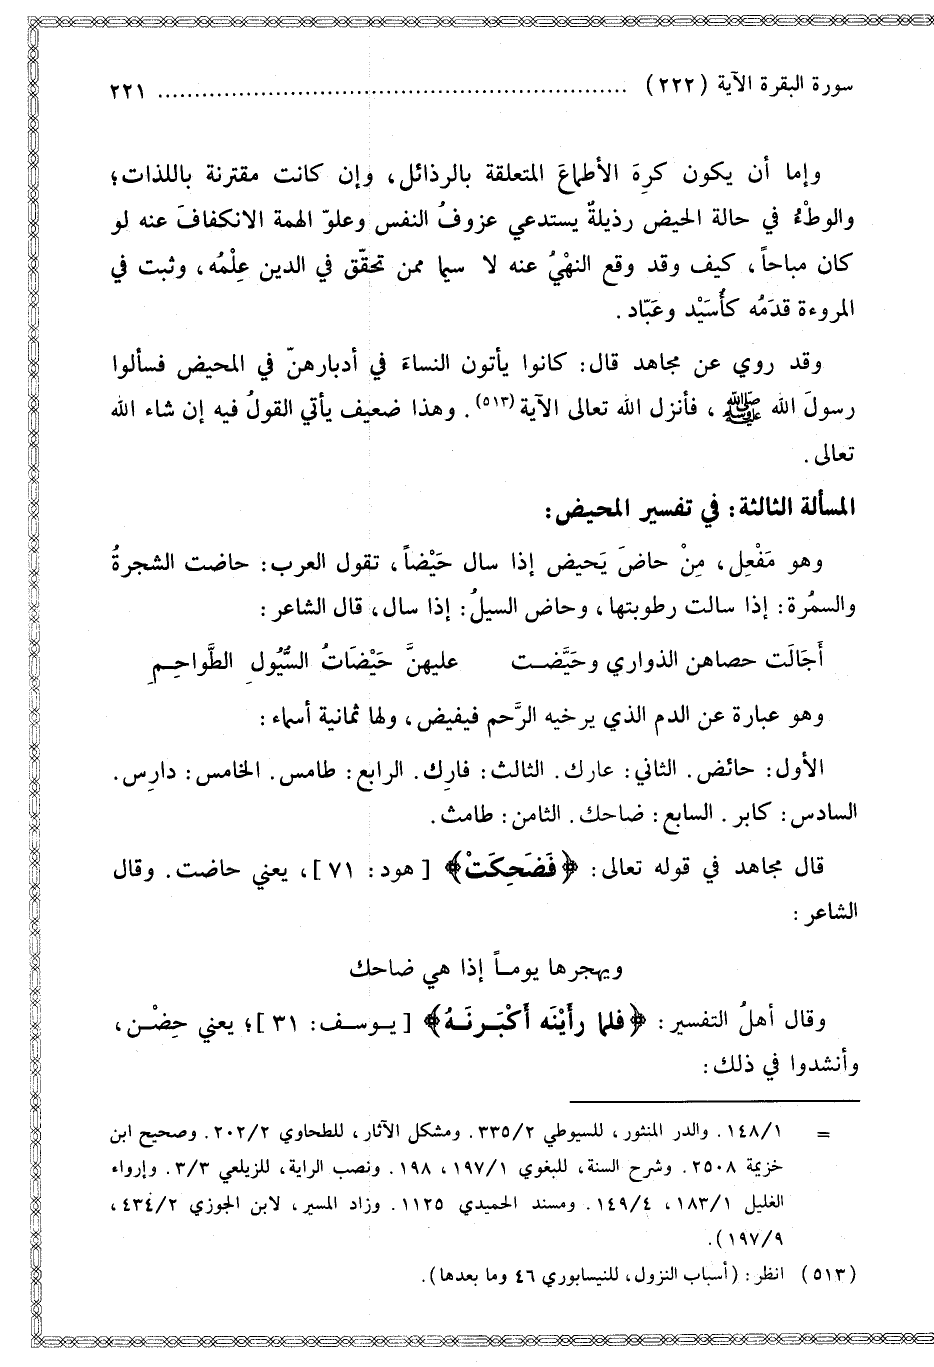 سورة البقرة الآية (٢٢٢) ................................................................ ٢٢١
وإما أن يكون كرِهَ الأطماعَ المتعلقة بالرذائل، وإن كانت مقترنة باللذات؛
والوطْءُ في حالة الحيض رذيلةٌ يستدعي عزوفُ النفس وعلوّ الهمة الانكفافَ عنه لو
كان مباحاً، كيف وقد وقع النهْيُ عنه لا سيما ممن تحقّق في الدين عِلْمُه، وثبت في
المروءة قدَمُه كأُسَيْد وعَبّاد.
وقد روي عن مجاهد قال: كانوا يأتون النساءَ في أدبارهنّ في المحيض فسألوا
رسولَ الله ﷺ، فأنزل الله تعالى الآية(٥١٣). وهذا ضعيف يأتي القولُ فيه إن شاء الله
تعالى.
المسألة الثالثة: في تفسير المحيض:
وهو مَفْعِل، مِنْ حاضَ يَحيض إذا سال حَيْضاً، تقول العرب: حاضت الشجرةُ
والسمُرة: إذا سالت رطوبتها، وحاض السيلُ: إذا سال، قال الشاعر:
أَجَالَت حصاهن الذواري وحَيَّضـت عليهنَّ حَيْضَاتُ السُّيُولِ الطَّواحِـمِ
وهو عبارة عن الدم الذي يرخيه الرَّحم فيفيض، ولها ثمانية أسماء:
الأول: حائض. الثاني: عارك. الثالث: فارِك. الرابع: طامس. الخامس: دارِس.
السادس: كابر. السابع: ضاحك. الثامن: طامث.
قال مجاهد في قوله تعالى: ﴿فَضَحِكَتْ﴾ [هود: ٧١]، يعني حاضت. وقال
الشاعر:
ويهجرها يومـاً إذا هي ضاحك
وقال أهلُ التفسير: ﴿فلما رأَيْنَه أَكْبَـرنَـهُ﴾ [يـوسـف: ٣١]؛ يعني حِضْـن،
وأنشدوا في ذلك:
= ١٤٨/١. والدر المنثور، للسيوطي ٣٣٥/٢. ومشكل الآثار، للطحاوي ٢٠٢/٢. وصحيح ابن
خزيمة ٢٥٠٨. وشرح السنة، للبغوي ١٩٧/١، ١٩٨. ونصب الراية، للزيلعي ٣/٣. وإرواء
الغليل ١٨٣/١، ١٤٩/٤. ومسند الحميدي ١١٢٥. وزاد المسير، لابن الجوزي ٤٣٤/٢،
١٩٧/٩).
(٥١٣) انظر: (أسباب النزول، للنيسابوري ٤٦ وما بعدها).